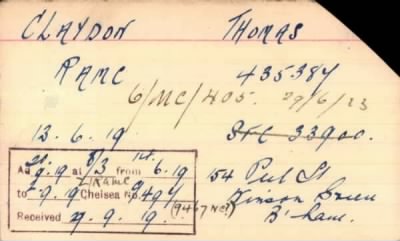 CLAYDON THOMAS
RAMC 435384
6/MC/405. 29/6/23
13.6.19 33900.
Ad 9.19 at 8/3 from 6.19
to 9.19 Chelsea No.
Received 29.9.19. 54 Peel St
Winson Green
B'ham.